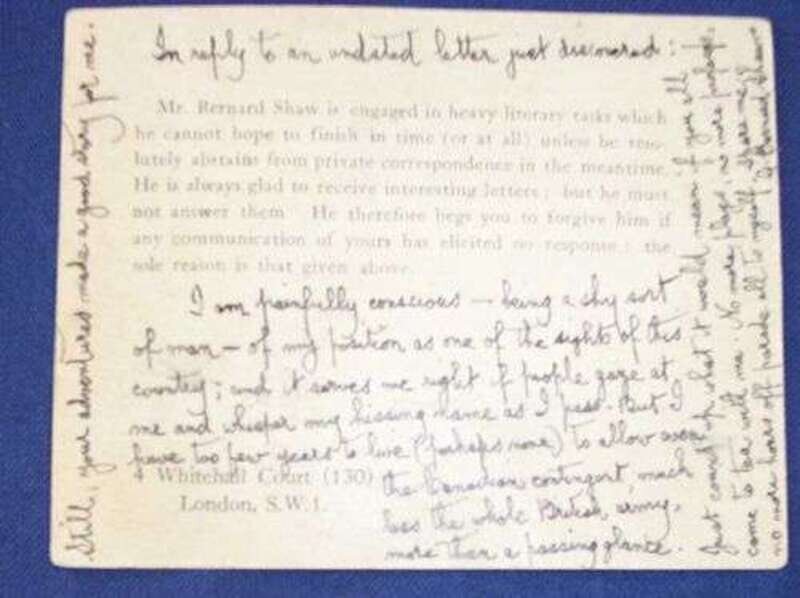 In reply to an undated letter just discovered:
Mr. Bernard Shaw is engaged in heavy literary tasks which
he cannot hope to finish in time (or at all) unless he reso-
lutely abstains from private correspondence in the meantime.
He is always glad to receive interesting letters; but he must
not answer them. He therefore begs you to forgive him if
any communication of yours has elicited no response: the
sole reason is that given above.
I am painfully conscious — being a shy sort
of man — of my position as one of the sights of this
country; and it serves me right if people gaze at
me and whisper my hissing name as I pass. But I
have too few years to live (perhaps none) to allow even
4 Whitehall Court (130)
London, S.W.1.
the Canadian contingent, much
less the whole British army,
more than a passing glance.
Just count up what it would mean if you all
come to tea with me. No more plays, no more prefaces,
no more hours off parade all to myself,
G. Bernard Shaw
Still, your adventures made a good story for me.